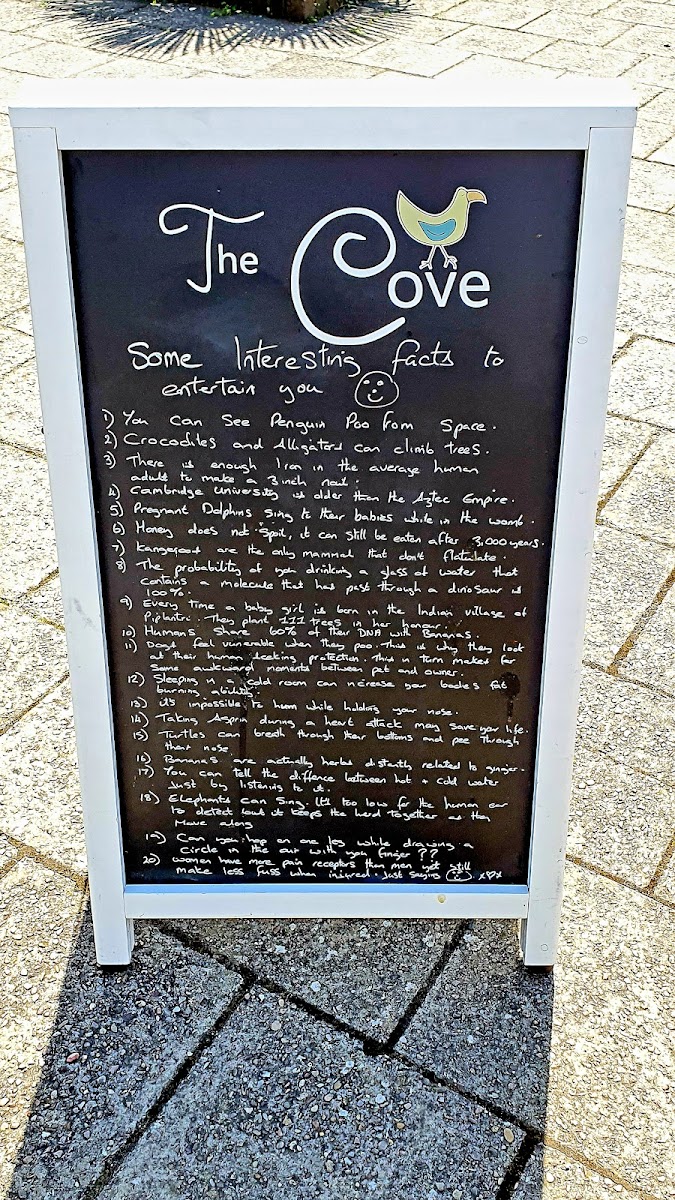 The Cove
Some Interesting facts to
entertain you
1) You can See Penguin Poo from Space.
2) Crocodiles and Alligators can climb trees.
3) There is enough Iron in the average human
adult to make a 3 inch nail.
4) Cambridge University is older than the Aztec Empire.
5) Pregnant Dolphins sing to their babies while in the womb.
6) Honey does not spoil, it can still be eaten after 3,000 years.
7) Kangaroos are the only mammal that don't flatulate.
8) The probability of you drinking a glass of water that
contains a molecule that has past through a dinosaur is
100%.
9) Every time a baby girl is born in the Indian village of
Piplantri. They plant 111 trees in her honour.
10) Humans share 60% of their DNA with Bananas.
11) Dogs feel vunerable when they poo. This is why they look
at their human seeking protection. This in turn makes for
some awkward moments between pet and owner.
12) Sleeping in a cold room can increase your bodies fat
burning ability.
13) it's impossible to hum while holding your nose.
14) Taking Asprin during a heart attack may save your life.
15) Turtles can breath through their bottoms and pee through
their nose
16) Bananas are actually herbs distantly related to ginger.
17) You can tell the diffence between hot + cold water
Just by listening to it.
18) Elephants can Sing. It's too low for the human ear
to detect but it keeps the herd together as they
Move along
19) Can you hop on one leg while drawing a
circle in the air with you finger??
20) women have more pain receptors than men yet still
make less fuss when injured. Just saying x♡x